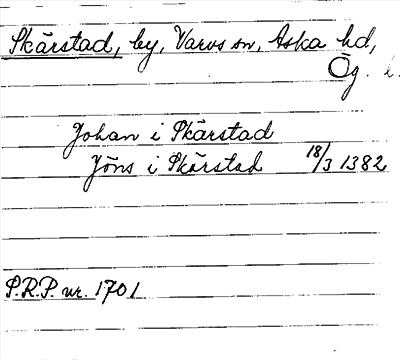 Skärstad, by, Varvs sn, Aska hd,
Ög. l.
Johan i Skärstad
Jöns i Skärstad 18/3 1382
S.R.P. nr. 1701